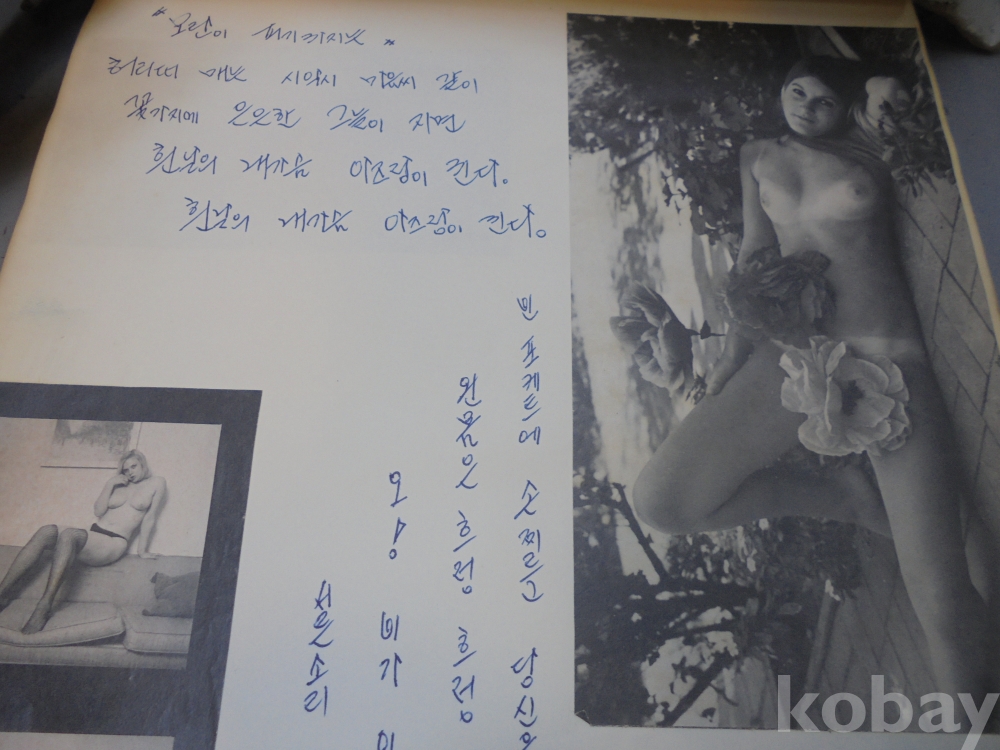 "모란이 피기까지는"
허리띠 매는 시악시 마음씨 같이
꽃가지에 은은한 그늘이 지면
흰날의 내가슴 아즈랑이 낀다。
흰날의 내가슴 아즈랑이 낀다。
빈 포켓트에 손찌르고 당신의
왼몸은 흐렁 흐렁
오! 비가
서른소리
kobay